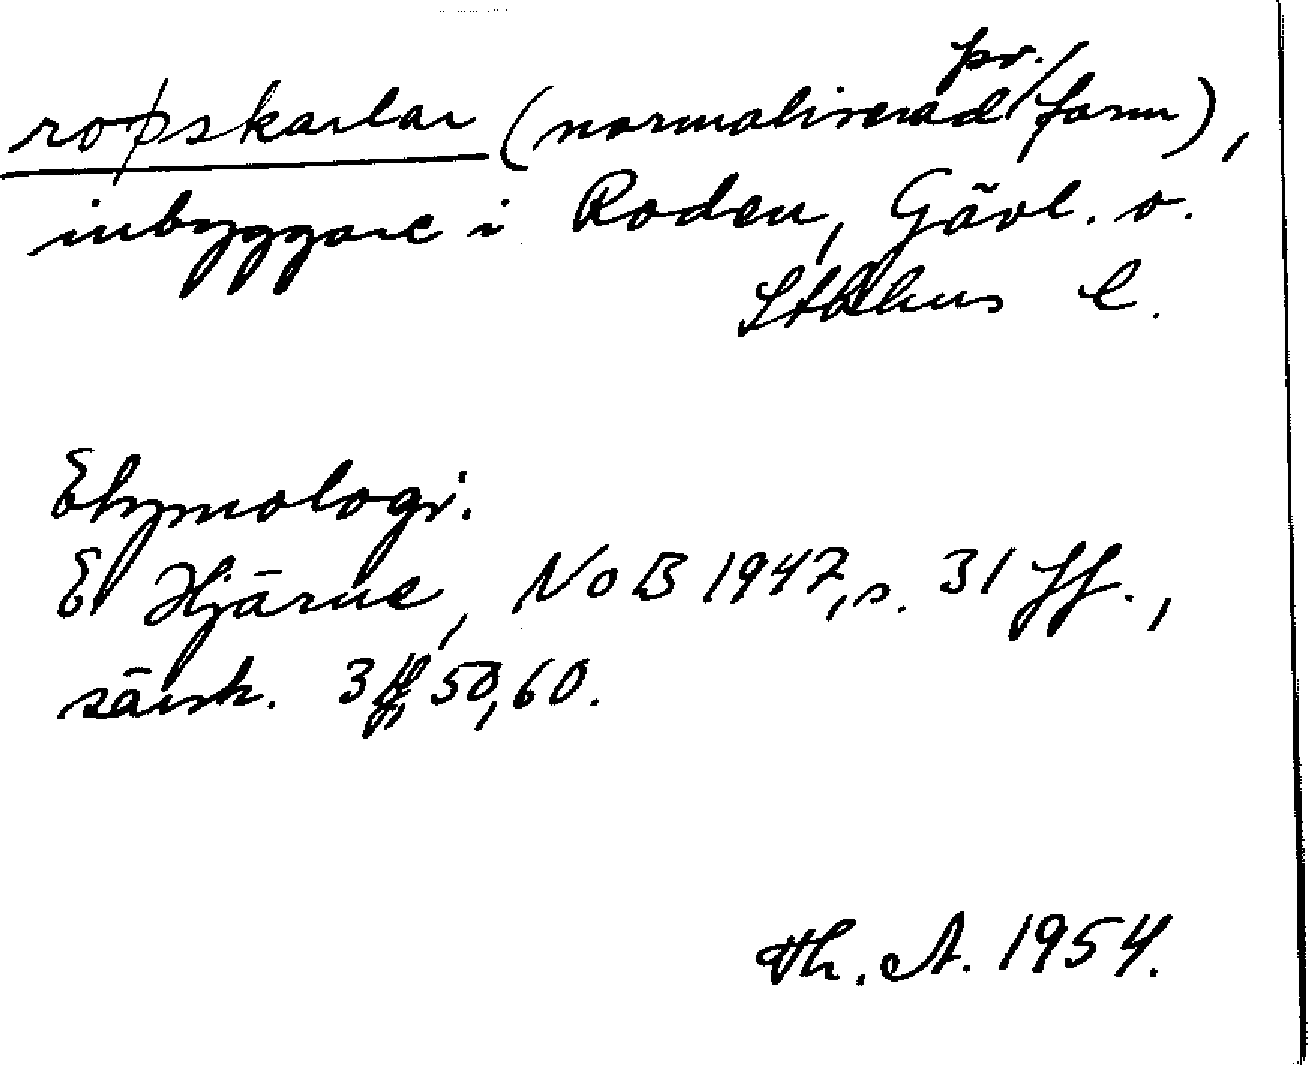 roþskarlar (normaliserad fsv. form),
inbyggare i Roden, Gävl. o.
Sthlms l.
Etymologi.
E Hjärne, NoB 1947, s. 31 ff.,
särsk. 50, 60.
Th. A. 1954.